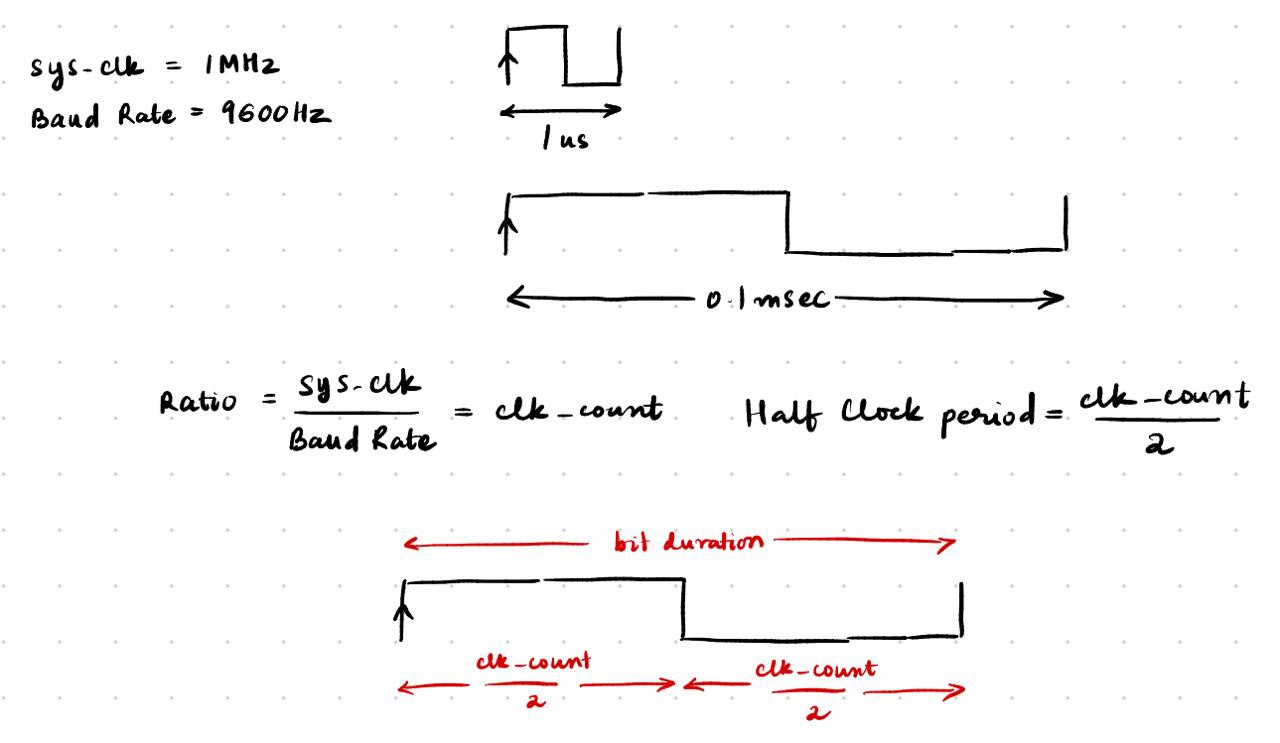 sys-clk = 1MHz
Baud Rate = 9600Hz
1 us
0.1 msec
Ratio = sys-clk / Baud Rate = clk-count
Half Clock period = clk-count / 2
bit duration
clk-count / 2
clk-count / 2